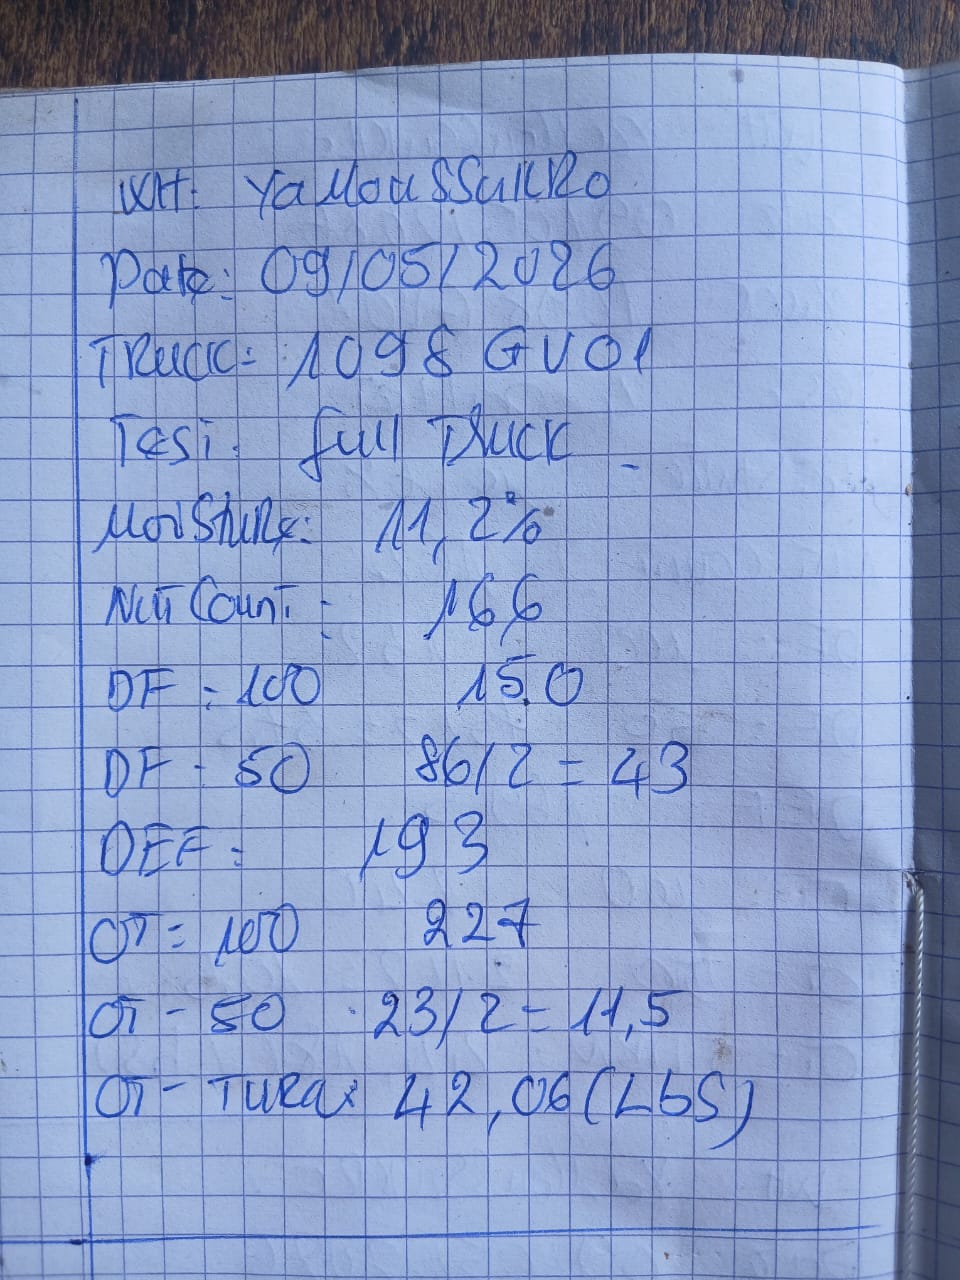 WH: YaMoussuKRo
Date: 09/05/2026
TRuck: 1098 GV01
Test: full Truck
MoiStuRe: 11,2%
Nut Count: 166
DF: 100 150
DF - 50 86/2 = 43
DEF: 193
OT = 100 227
OT - 50 23/2 = 11,5
OT - TuRax 42,06 (LbS)